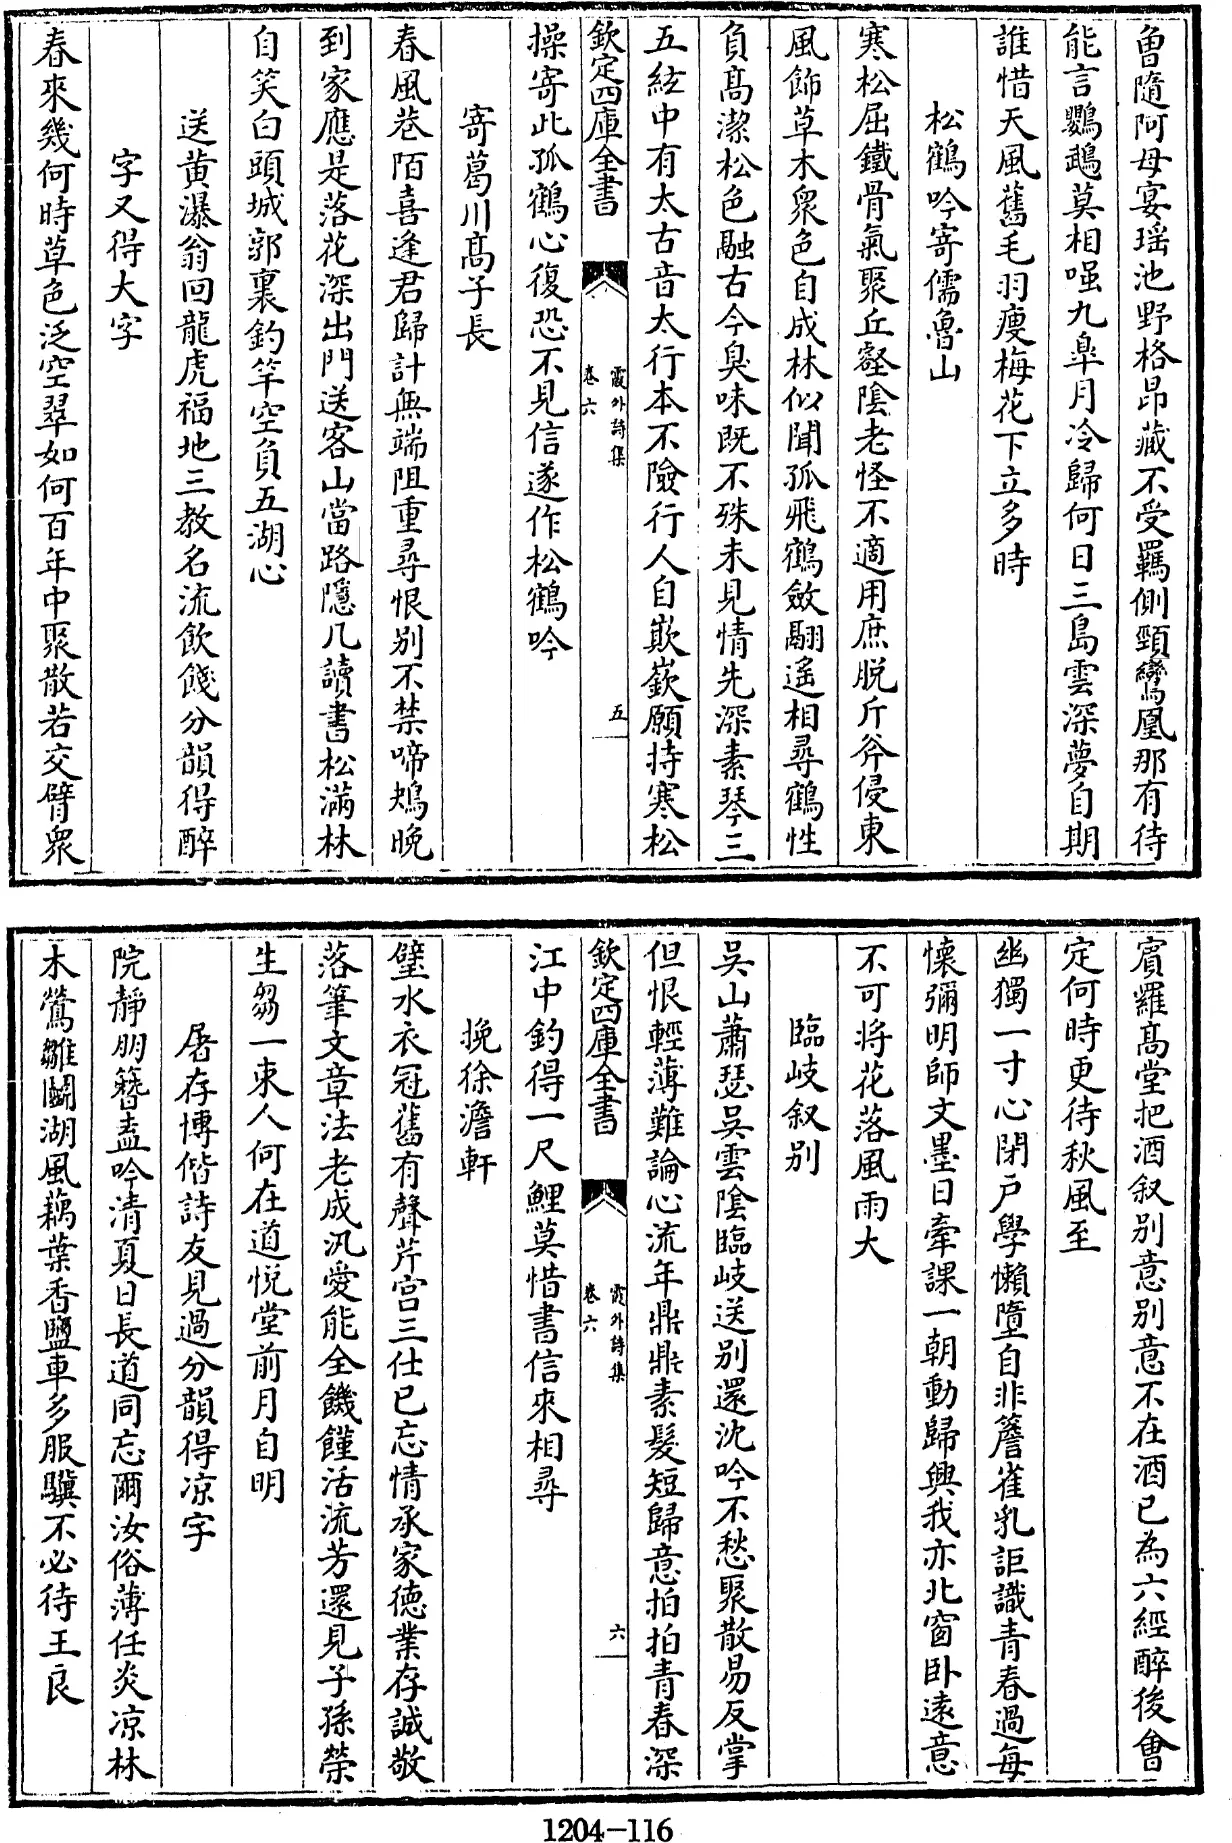 曾隨阿母宴瑶池野格昂藏不受羈側頸鸞凰那有待
能言鸚鵡莫相嗤九臯月冷歸何日三島雲深夢自期
誰惜天風舊毛羽瘦梅花下立多時
松鶴吟寄儒魯山
寒松屈鐵骨氣聚丘壑隂老怪不適用庶脱斤斧侵東
風飾草木衆色自成林似聞孤飛鶴斂翮遥相尋鶴性
負髙潔松色融古今臭味既不殊未見情先深素琴三
五絃中有太古音太行本不險行人自嶔嶔願持寒松
欽定四庫全書
霞外詩集
卷六
五
操寄此孤鶴心復恐不見信遂作松鶴吟
寄葛川髙子長
春風巷陌喜逢君歸計無端阻重尋恨别不禁啼鴂晚
到家應是落花深出門送客山當路隱几讀書松滿林
自笑白頭城郭裏釣竿空負五湖心
送黄瀑翁回龍虎福地三教名流飲餞分韻得醉
字又得大字
春來幾何時草色泛空翠如何百年中聚散若交臂衆
賓羅髙堂把酒叙别意别意不在酒已為六經醉後會
定何時更待秋風至
幽獨一寸心閉戸學懶墮自非簷雀乳詎識青春過每
懷彌明師文墨日牽課一朝動歸興我亦北窗卧遠意
不可將花落風雨大
臨岐叙别
吳山蕭瑟吳雲隂臨岐送别還沈吟不愁聚散易反掌
但恨輕薄難論心流年鼎鼎素髮短歸意拍拍青春深
欽定四庫全書
霞外詩集
卷六
六
江中釣得一尺鯉莫惜書信來相尋
挽徐澹軒
璧水衣冠舊有聲芹宫三仕已忘情承家德業存誠敬
落筆文章法老成汎愛能全饑饉活流芳還見子孫榮
生芻一束人何在道悦堂前月自明
屠存博偕詩友見過分韻得凉字
院靜朋簪盍吟清夏日長道同忘爾汝俗薄任炎凉林
木鶯雛鬭湖風藕葉香鹽車多服驥不必待王良
1204-116